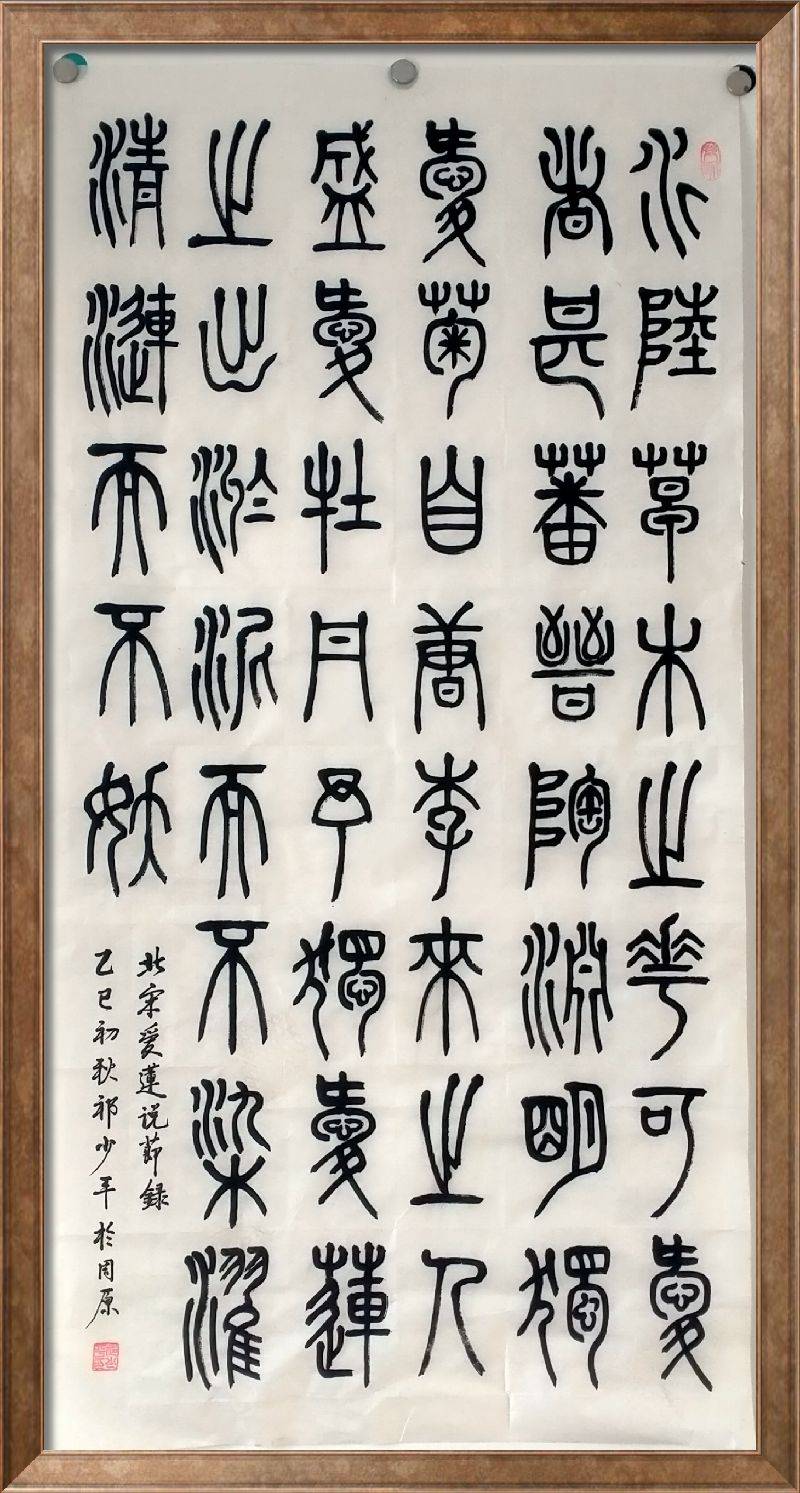 水陸草木之華可愛
者甚蕃晉陶淵明獨
愛菊自唐李來之人
盛愛牡丹予獨愛蓮
之出淤泥而不染濯
清漣而不妖
北宋愛蓮说節録
乙巳初秋祁少平於周原